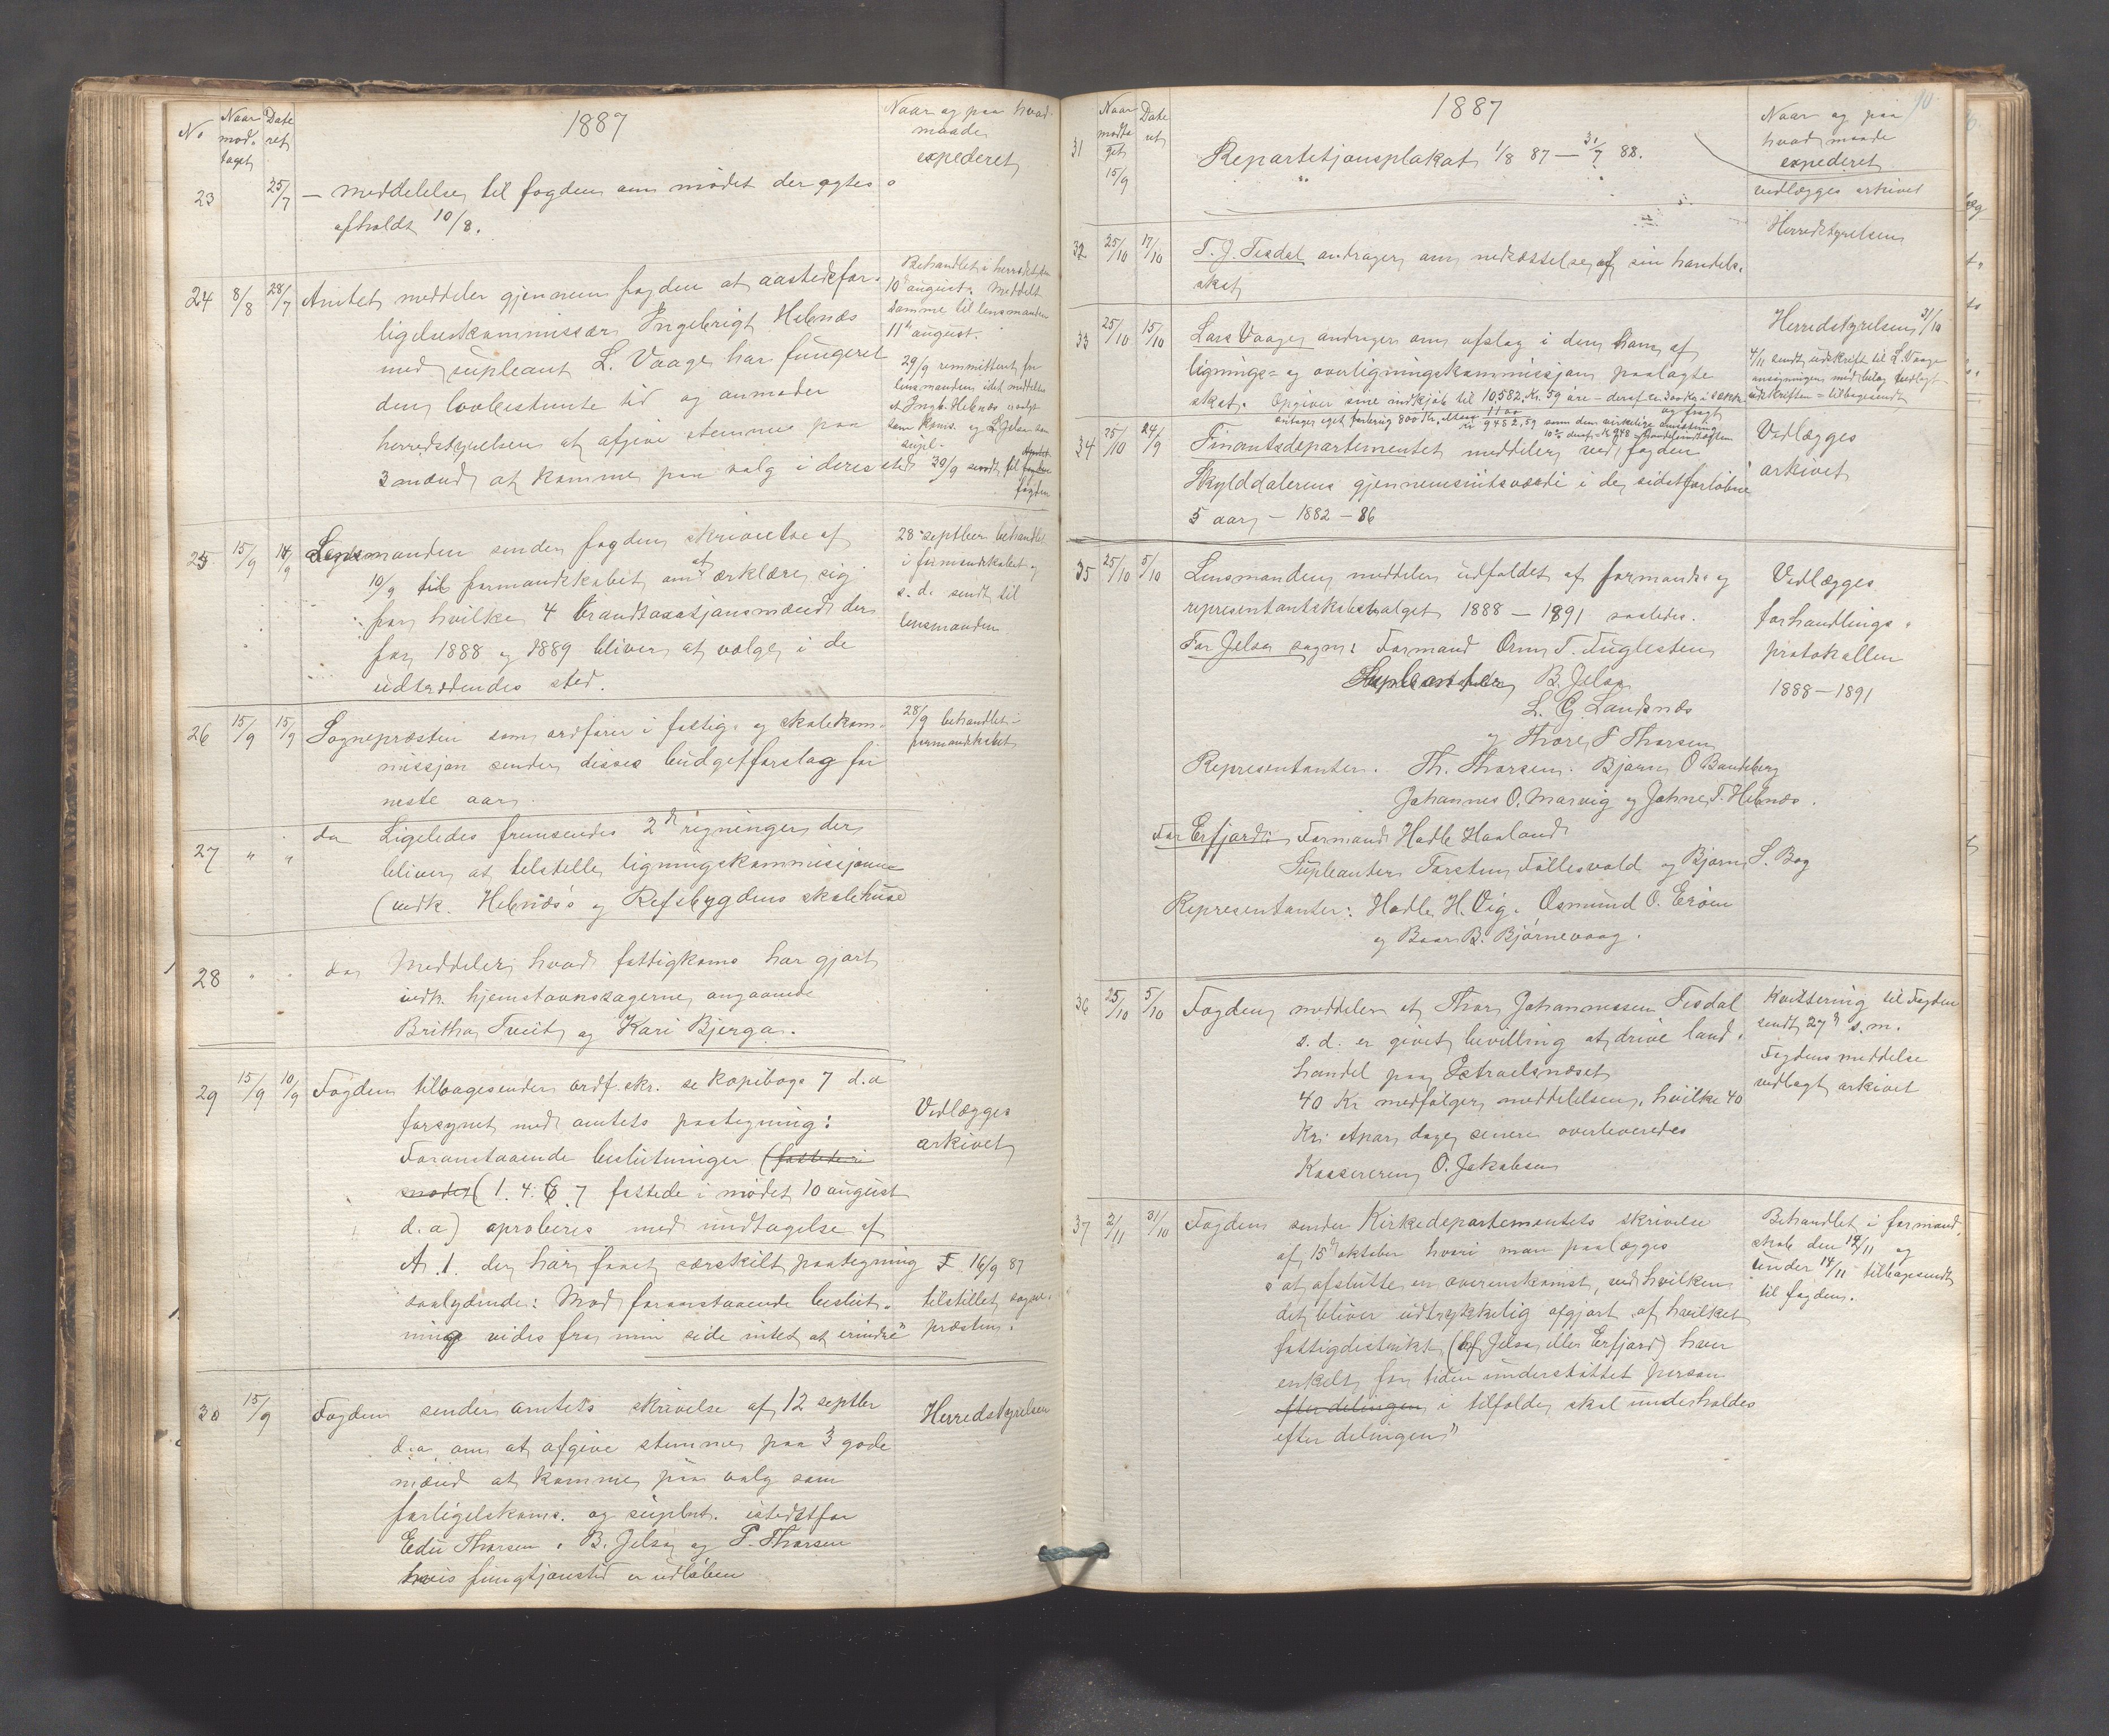 No
Naar
mod-
taget
Date
ret
1887
Naar og paa hvad
maade
expederet
23 25/7 — meddelelse til fogden om mødet der agtes
afholdt 10/8.
24 8/8 28/7 Amtet meddeler gjennem fogden at aastedsfor-
ligelseskommissær Ingebrigt Hebnæs
med supleant L. Vaage har fungeret
den lovbestemte tid og anmoder
herredstyrelsen at afgive stemme paa
3 mænd at komme paa valg i deres sted
Behandlet i herredst. den
10de august. Meddelt
samme til lensmanden
11te august.
29/9 remmitteret fra
lensmanden idet meddeltes
at Ingb. Hebnæs valgt
som koms. og L. Jelsa som
supl.
30/9 sendt til
fogden
25 15/9 14/9 Lensmanden sender fogdens skrivelse af
10/9 til formandskabet om at erklære sig
for hvilke 4 brandtaxstjonsmænd der
for 1888 og 1889 bliver at vælge i de
udtrædendes sted.
28 septber behandlet
i formandskabet og
s. d. sendt til
lensmanden
26 15/9 15/9 Sognepræsten som ordfører i fattig- og skolekom-
missjon sender disses budgetforslag for
neste aar.
28/9 behandlet i
formandskabet
27 " " do Ligeledes fremsendes 2de regninger der
bliver at tilstille ligningskommissjonen
(vedk. Hebnæs's og Refsbygdens skolehuse
28 " " do Meddeler hvad fattigkoms har gjort
vedk. hjemstavnssagerne angaaende
Britha Tveit og Kari Bjerga.
29 15/9 10/9 Fogden tilbagesender ordf. skr. se kopibogs 7 d.a
forsynet med amtets paategning:
Foranstaaende beslutninger (fattede i
mødet (1. 4. 6 7 fattede i mødet 10 august
d. a) aproberes med undtagelse af
No. 1. der har faaet særskilt paategning
saalydende: Mod foranstaaende beslut-
ning vides fra min side intet at erindre"
Vedlægges
arkivet
16/9 87
tilstillet sogne-
præsten.
30 15/9 Fogden sender amtets skrivelse af 12 septber
d. a om at afgive stemme paa 3 gode
mænd at komme paa valg som
forligelskoms. og suplnt. istedetfor
Edu Thorsen, B. Jelsa og P. Thorsen
hvis fungtjonstid er udløben
Herredstyrelsen
10
Naar
modta
get
Date
ret
1887
Naar og paa
hvad maade
expederet
31 15/9 Repartitjonsplakat 1/8 87 — 31/7 88.
vedlægges arkivet
32 25/10 17/10 T. J. Tisdal andrager om nedsættelse af sin handels-
skat
Herredstyrelsen
33 25/10 15/10 Lars Vaage andrager om afslag i den ham af
lignings- og overligningskommissjonen paalagte
skat. Opgiver sine indkjøb til 10,582 Kr. 59 øre – deraf ca. 300 Kr
antages eget forbrug 800 Kr. 1100
Kr 9482,59 som den virkelige omsætning
Herredstyrelsen 31/10
4/11 sendt udskrift til L. Vaage
ansøgningen med bilag vedlagt
udskriften – tilbagesendt
34 25/10 24/9 Finantsdepartementet meddeler ved fogden
Skylddalerens gjennemsnitsværdi i de sidstforløbne
5 aar – 1882–86
Vedlægges
arkivet
35 25/10 5/10 Lensmanden meddeler udfaldet af formands- og
representantskabsvalget 1888 – 1891 saaledes.
For Jelsa sogn: Formand Orm T. Fuglesten
Supleanter B. Jelsa
L. G. Landsnæs
og Thore P Thorsen
Representanter. Th. Thorsen. Bjørn O Bandeberg
Johannes O. Marvig og Johne T. Hebnæs.
For Erfjord: Formand Hadle Haaland
Supleanter Torsten Føllesvold og Bjørn S. Bog
Representanter: Hadle H. Vig. Osmund O. Erøen
og Baar B. Bjørnevaag.
Vedlægges
forhandlings-
protokollen
1888–1891
36 25/10 5/10 Fogden meddeler at Thor Johannessen Tisdal
s. d. er givet bevilling at drive land-
handel paa Petraelsnæset
40 Kr medfølger meddelelsen, hvilke 40
Kr: et par dage senere overleveredes
Kassereren O. Jakobsen
Kvittering til Fogden
sendt 27de s.m.
Fogdens meddelse
vedlagt arkivet
37 2/11 31/10 Fogden sender Kirkedepartementets skrivelse
af 15de oktober hvori man paalægges
at afslutte en overenskomst, ved hvilken
det bliver udtrykkelig afgjort af hvilket
fattigdistrikt (af Jelsa eller Erfjord) hver
enkelt for tiden understøttet person
efter delingen i tilfælde skal underholdes
efter delingen"
Behandlet i formand-
skab den 12/11 og
under 14/11 tilbagesendt
til fogden.